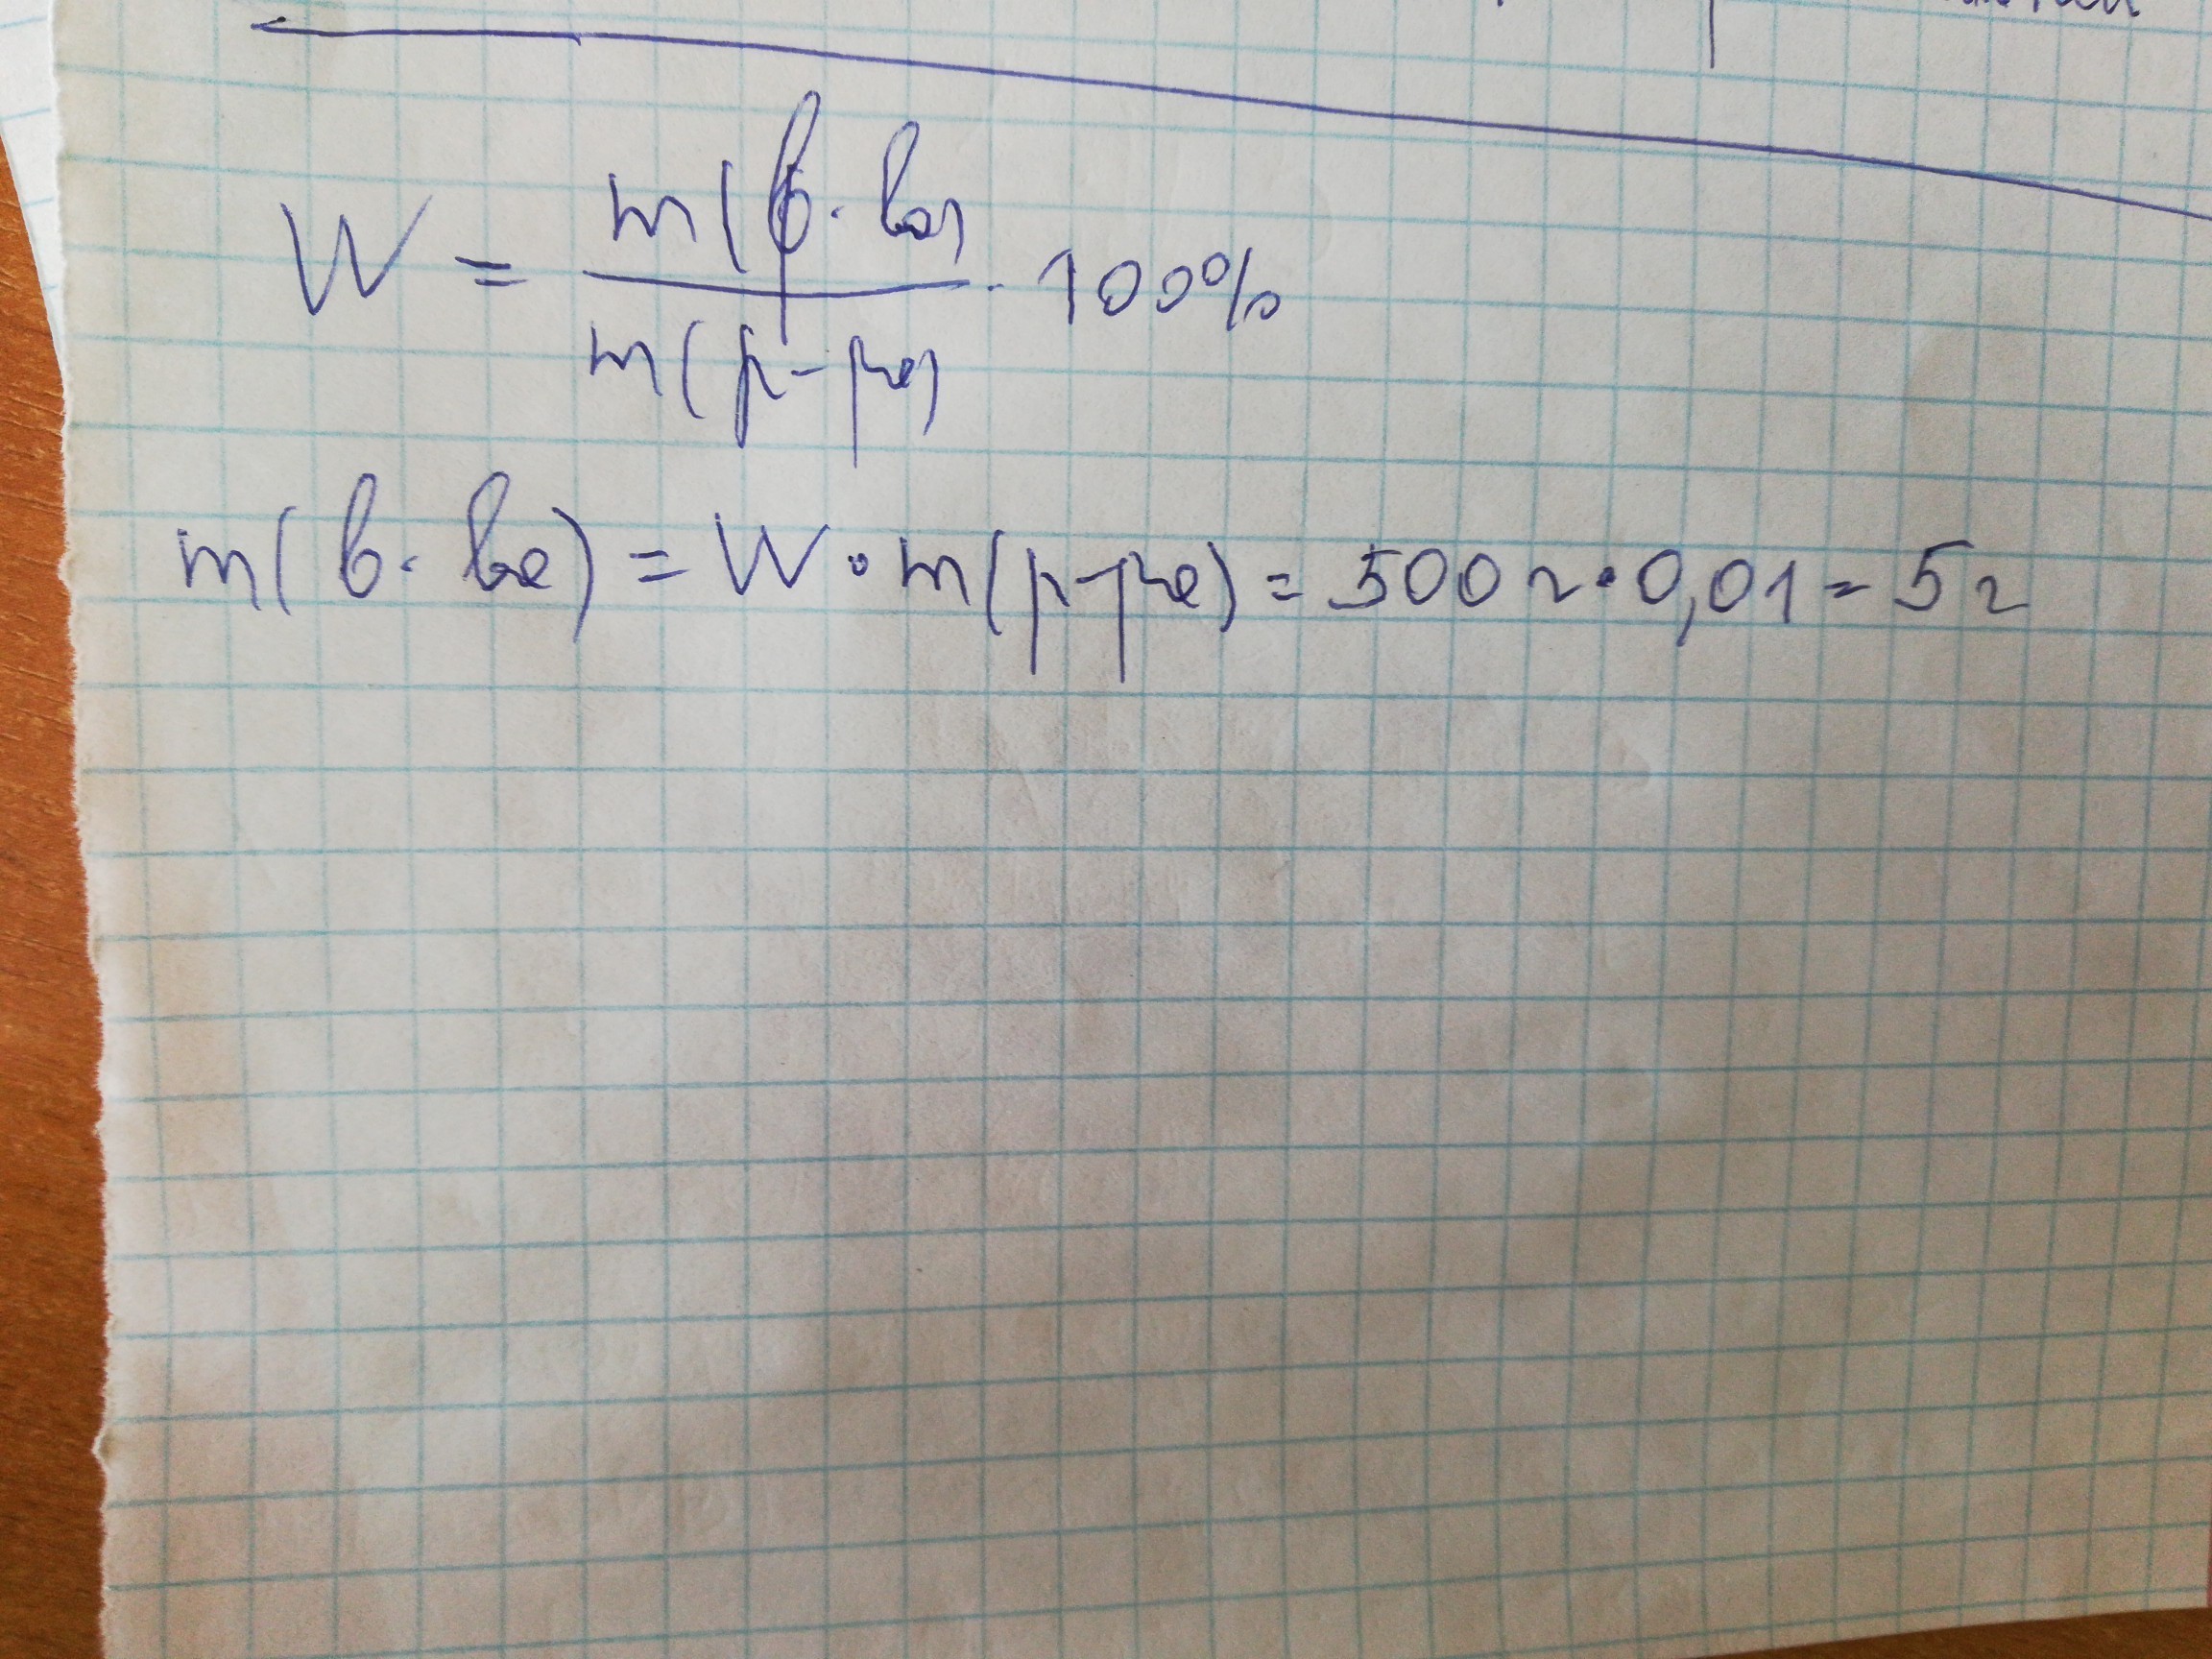 W = m(в-ва) / m(р-ра) · 100%
m(в-ва) = W · m(р-ра) = 500 г · 0,01 = 5 г